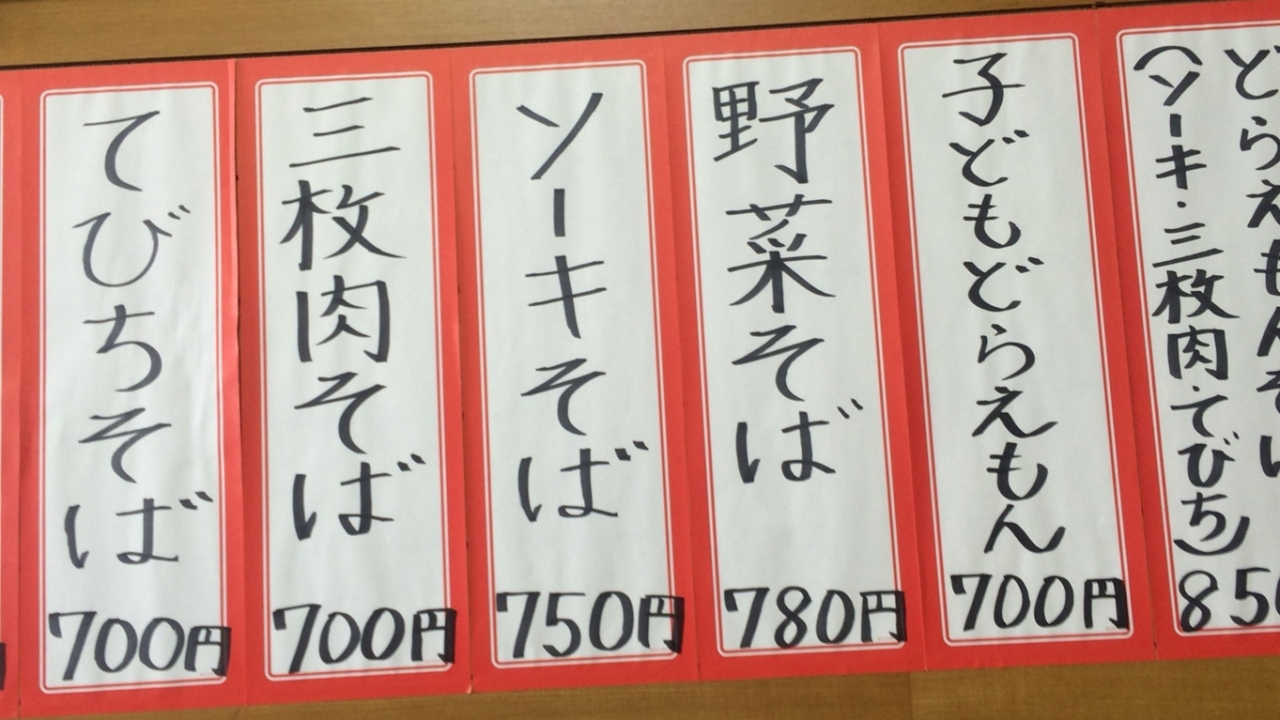 どらえもんそば
(ソーキ・三枚肉・てびち)
850
子どもどらえもん
700円
野菜そば
780円
ソーキそば
750円
三枚肉そば
700円
てびちそば
700円